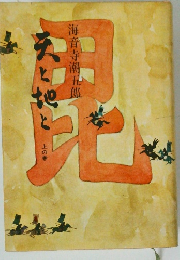 海音寺潮五郎
天と地と
上の巻
毘